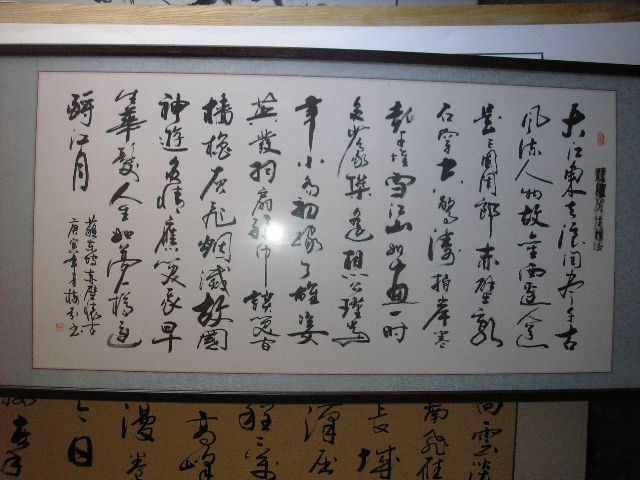 大江東去浪淘盡千古
風流人物故壘西邊人道
是三國周郎赤壁亂
石穿空驚濤拍岸卷
起千堆雪江山如畫一時
多少豪傑遙想公瑾當
年小喬初嫁了雄姿
英發羽扇綸巾談笑間
檣櫓灰飛烟滅故國
神遊多情應笑我早
生華髮人生如夢一樽還
酹江月
蘇東坡赤壁懷古
庚寅年
高雲淡
南飛雁
長城
漢屈
程二萬
高峰
漫卷
今日